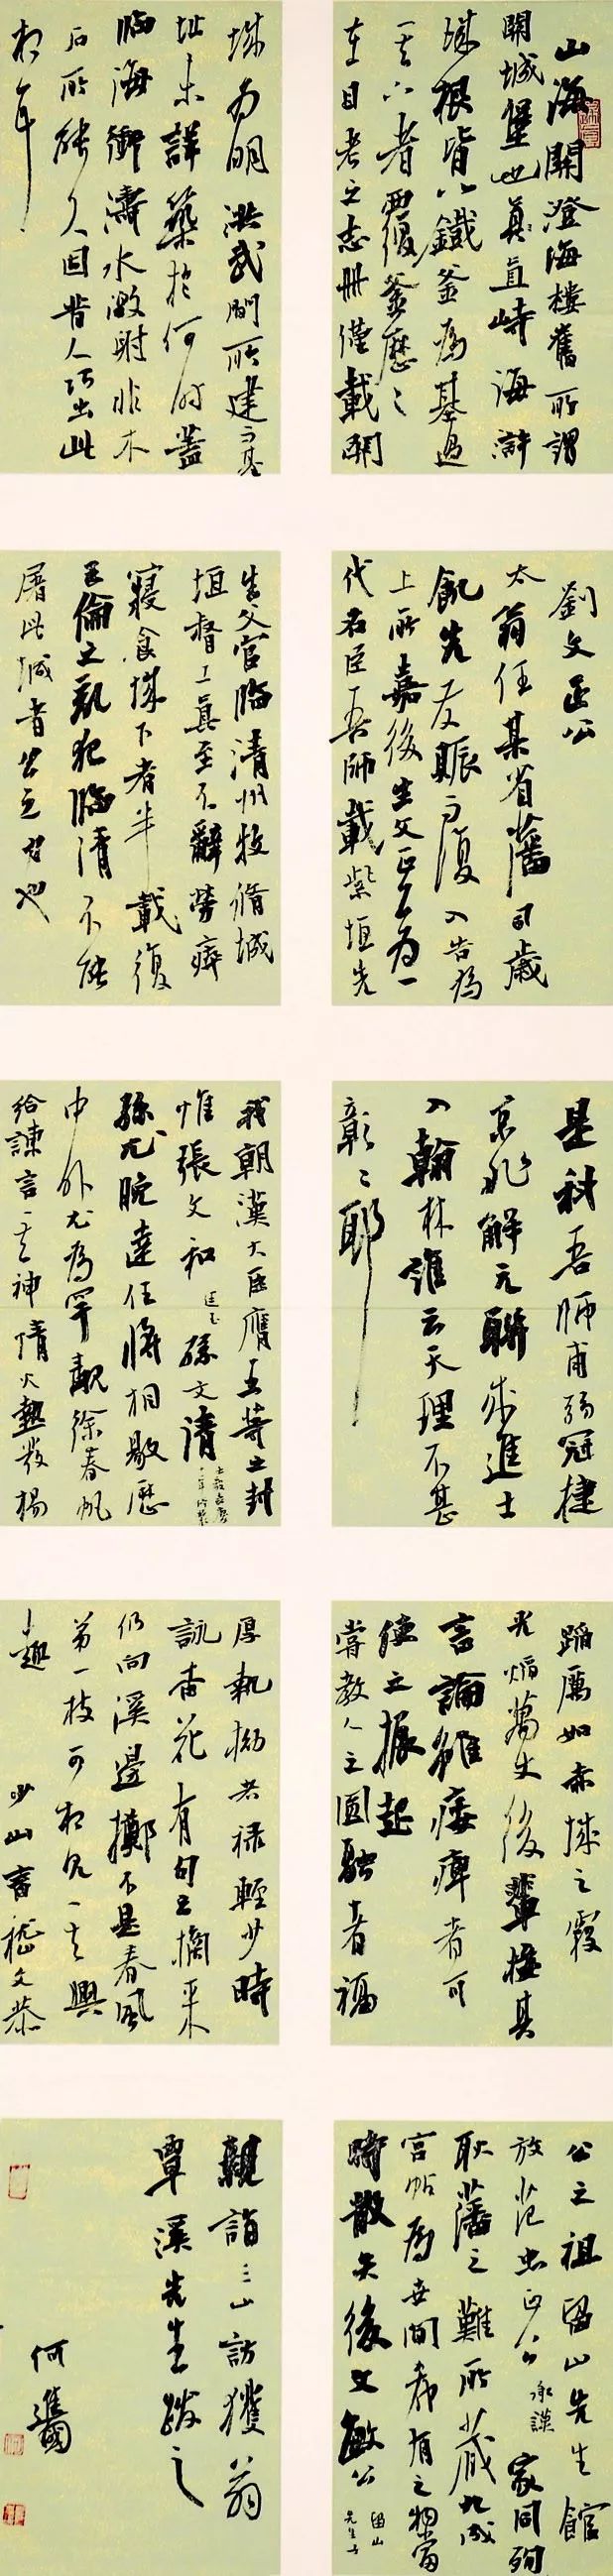 山海關澄海樓舊所謂
關城堡也真直峙海滸
城根皆以鐵釜為基過
其下者覆釜歷歷
在目考之志冊僅載關
城為明洪武閒所建而基
址未詳築於何時蓋
臨海衝濤水激射非木
石所能久固昔人巧出此
想年
劉文正公
太翁任某省藩司歲
飢先友賑而後入告為
上所嘉後生文正公為一
代名臣吾師載紫垣先
生父官臨清州牧脩城
垣督工真至不辭勞瘁
寢食城下者半載後
王倫之亂犯臨清不能
屠此城者公之力也
是科吾師甫弱冠捷
京兆解元聯成進士
入翰林誰云天理不甚
彰彰耶
我朝漢大臣膺五等之封
惟張文和 孫文清
孫尤晚達任將相敭歷
中外尤為罕覯徐春帆
給諫言其神情火熱發揚
蹈厲如赤城之霞
光燄萬丈後輩接其
言論雖痿痺者可
使之振起
嘗教人之圓融者福
厚執拗者祿輕少時
詠杏花有句云摘來
仍向溪邊擲不是春風
第一枝可想見其興
趣 少山畜嵇文恭
公之祖留山先生館
放范忠正公承謨家同殉
耿藩之難所藏九成
宮帖為世間希有之物當
時散失後文敏公留山先生子
親詣三山訪獲翁
覃溪先生跋之
何進國